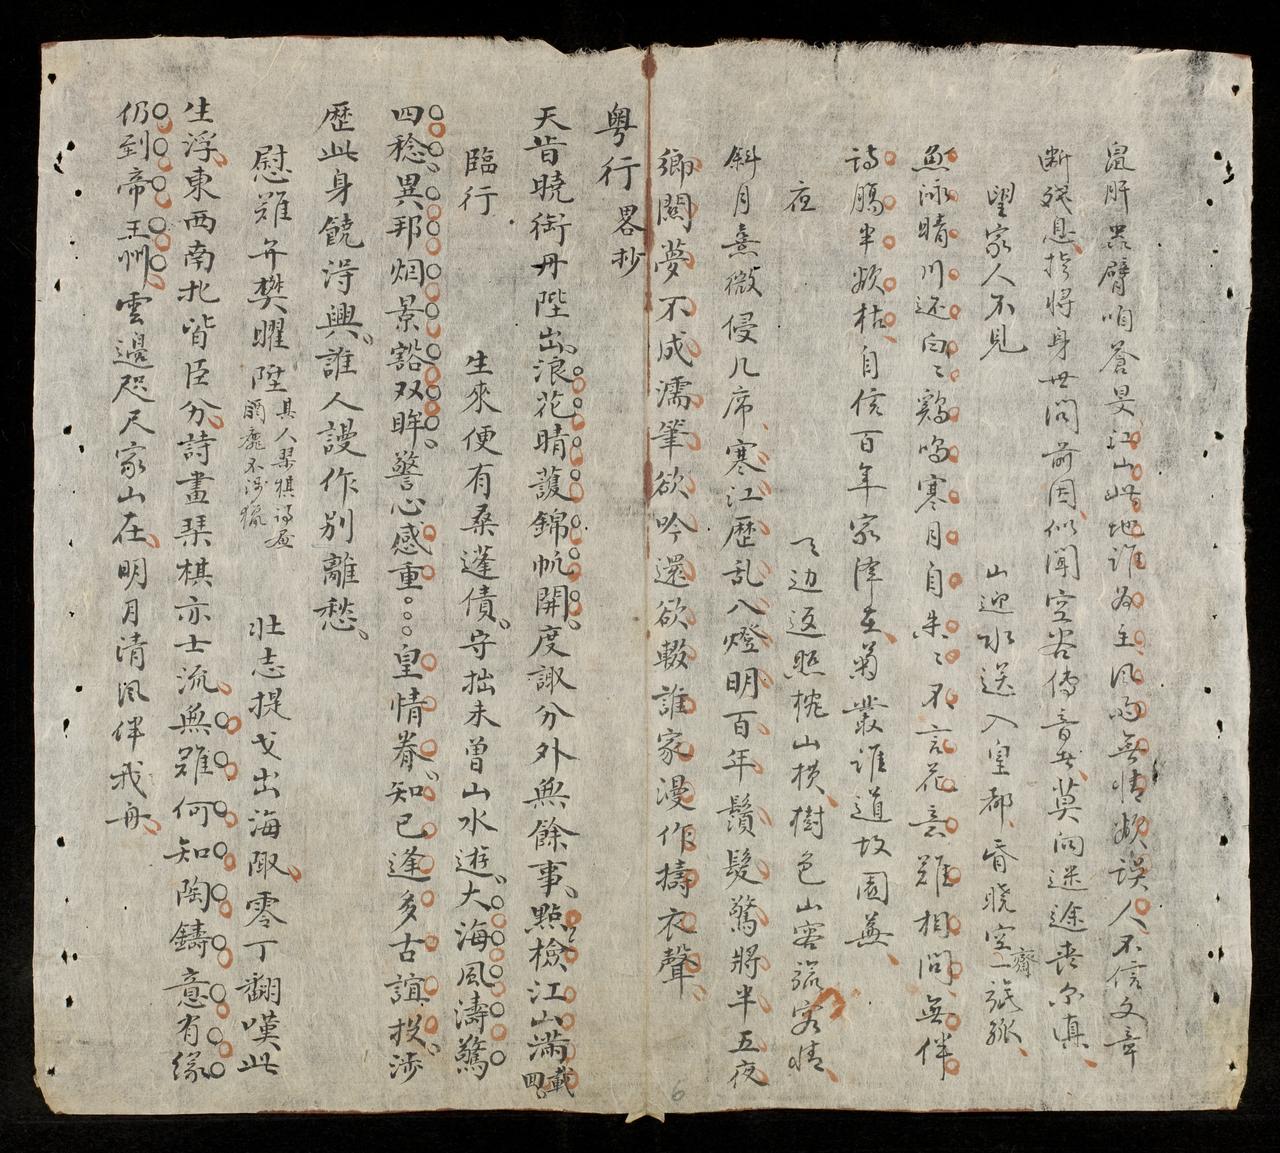 鼠肝蟲臂咱蒼旻江山此地誰為主風雨無情欲誤人不信文章
断残息将身世問前因似聞空谷傳音莫問迷途喪尔真
望家人不見 山迎水送入皇都昏曉空齋一
魚泳晴川还白〻鷄鳴寒月自朱〻不言花意難相問無伴
詩腸半欲枯自信百年家澤在菊叢誰道故園蕪
夜 天边返照梡山横樹色山容旅客情
斜月熹微侵几席寒江歷乱八燈明百年鬚髮驚將半五夜
鄉關夢不成濡筆欲吟還欲輟誰家漫作擣衣聲
粤行畧抄
天旹曉衙丹陛出浪花晴頀錦帆開度諏分外無餘事點檢江山滿載囬
臨行 生來便有桑蓬債守拙未曾山水遊大海風濤驚
四稔異邦烟景豁双眸警心感重皇情眷知已逢多古誼投涉
歷此身饒淂興誰人謾作別離愁
慰難弁樊曜陞 其人琴棋詩畫 靡不涉獵 壯志提戈出海陬零丁翻嘆此
生浮東西南北皆臣分詩畫琹棋亦士流無難何知陶鑄意有緣
仍到帝王州雲邊咫尺家山在明月清風伴我舟
6